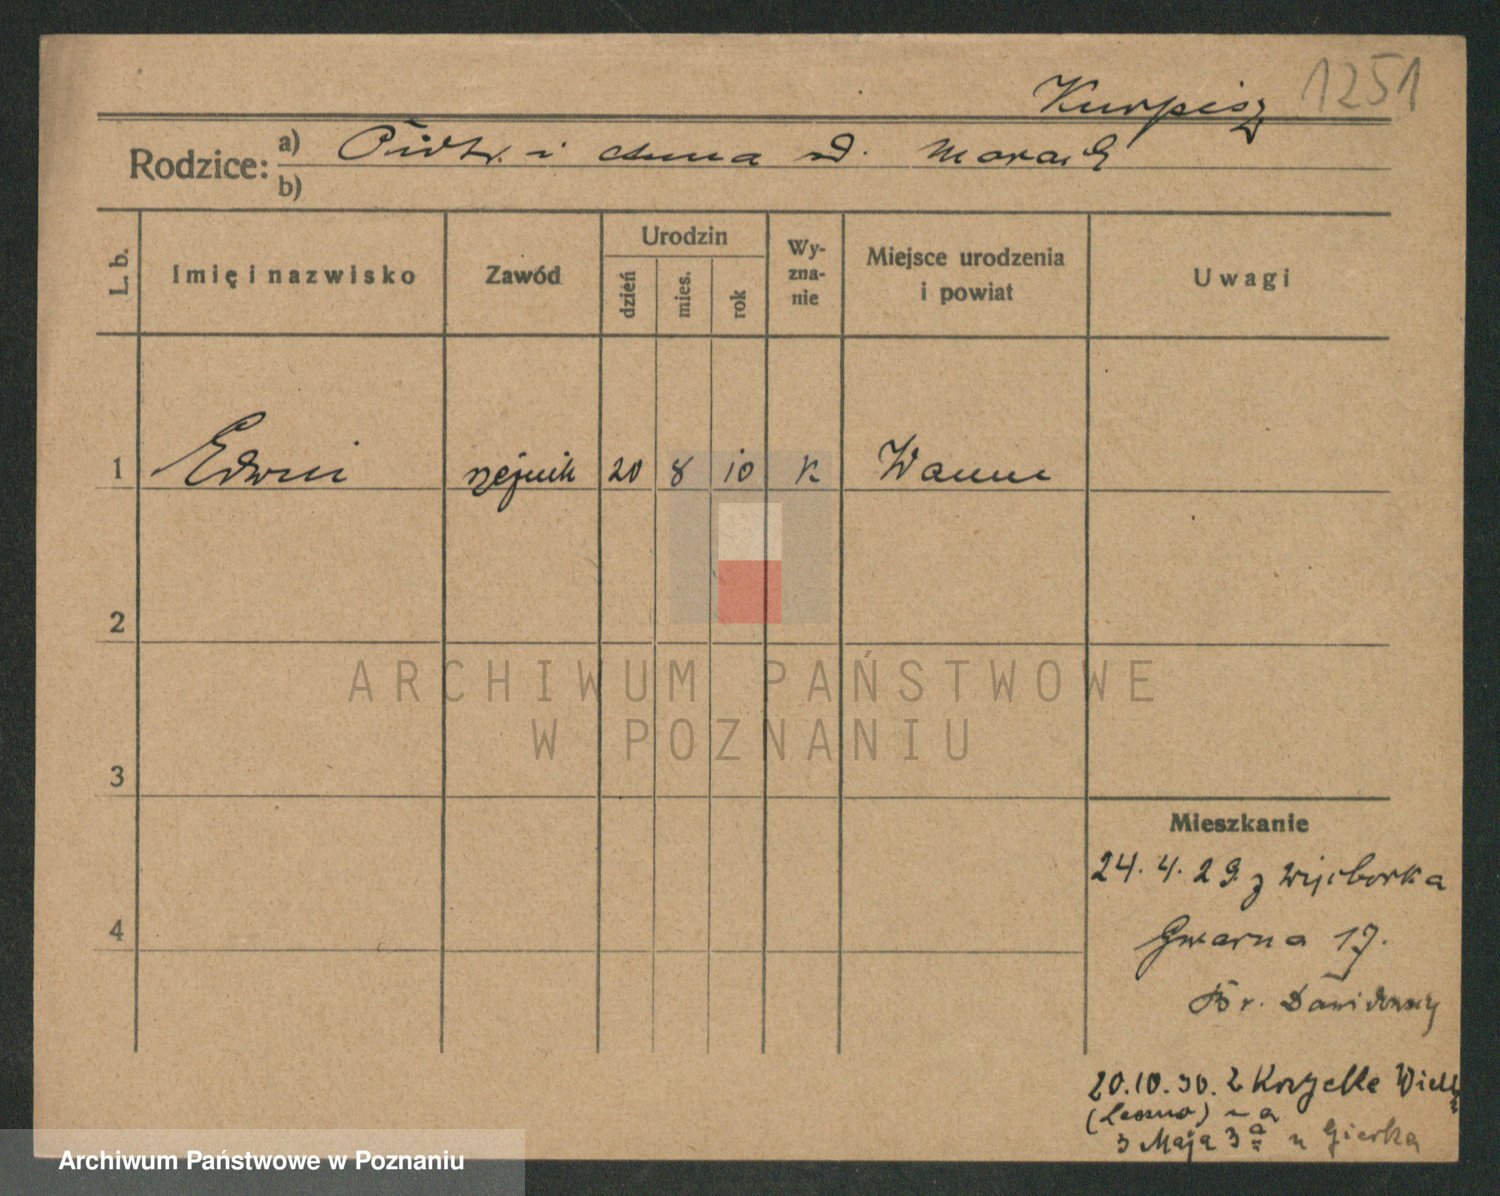 Kurpisz 1251
Rodzice: a) Piotr i Anna d.
b)
L. b.
Imię i nazwisko
Zawód
Urodzin
dzień
mies.
rok
Wy-
zna-
nie
Miejsce urodzenia
i powiat
Uwagi
1 Edwin rzeźnik 20 8 10 K Wanne
2
ARCHIWUM PAŃSTWOWE
W POZNANIU
3
Mieszkanie
24. 4. 29. z Więcborka
4
Gwarna 17.
Br.
20.10.30. z Wielk
(Leszno) na
3 Maja 3a u Gierka
Archiwum Państwowe w Poznaniu